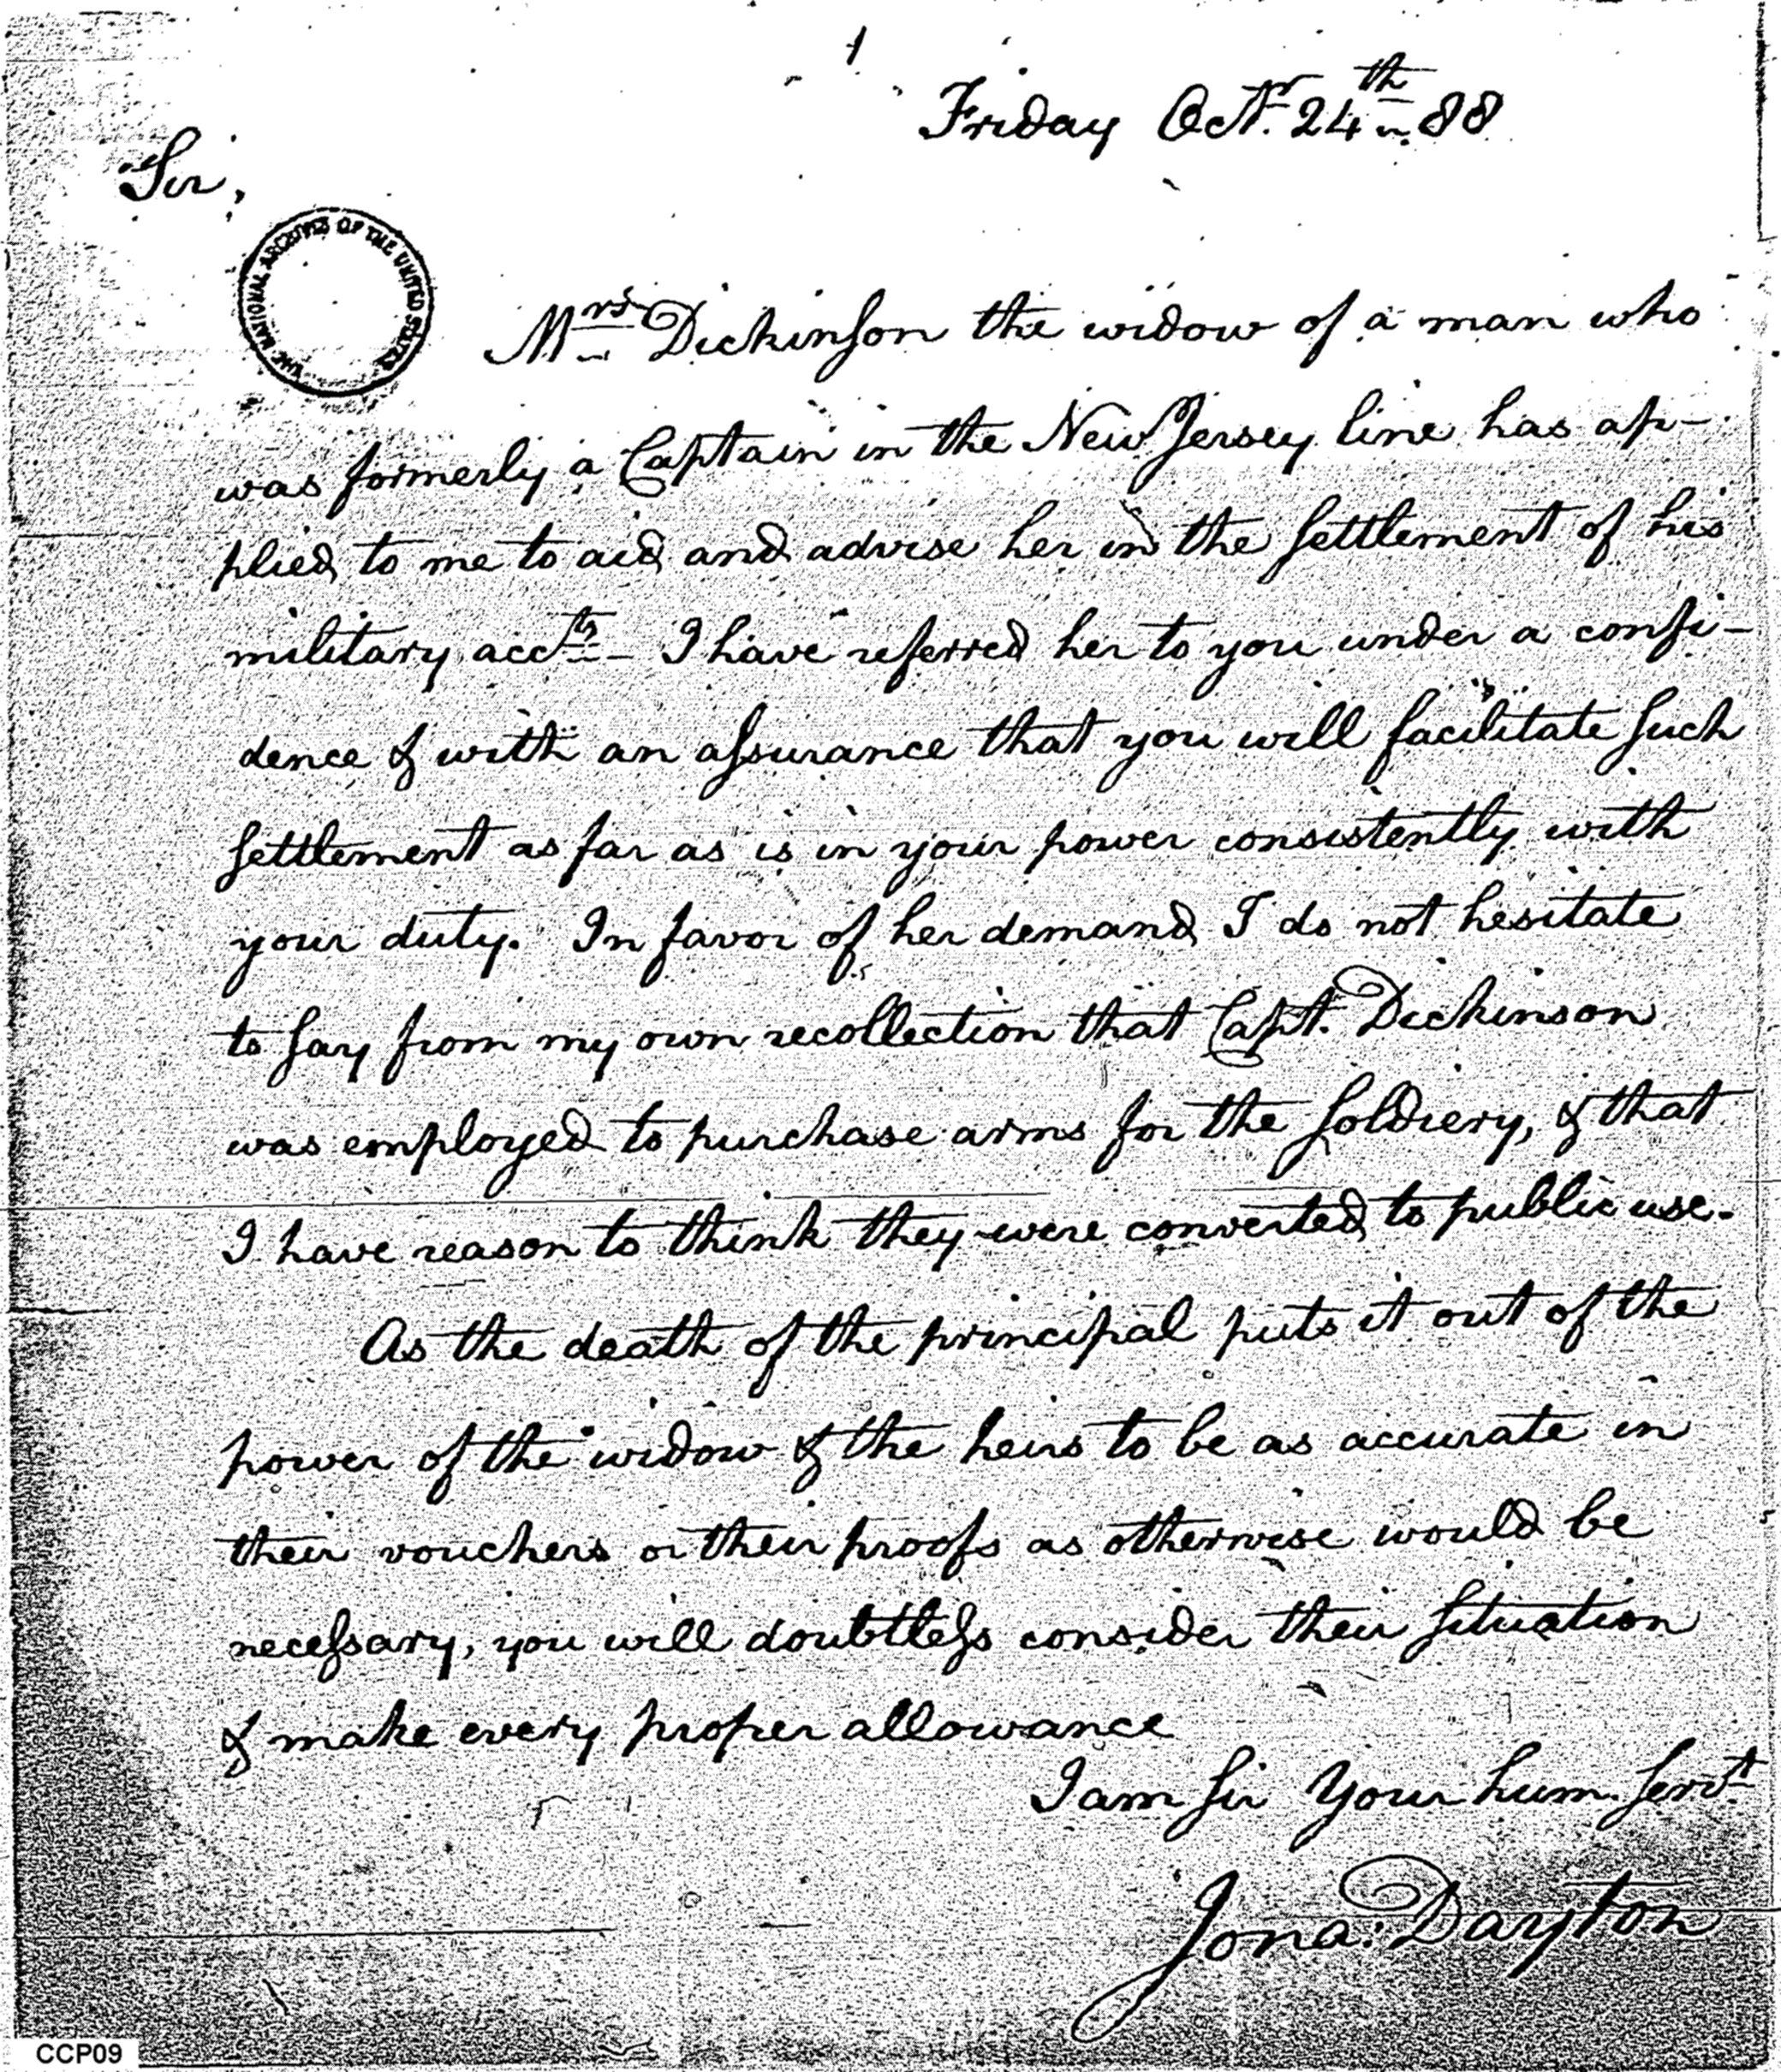 Friday Octr. 24th 88
Sir,
THE NATIONAL ARCHIVES OF THE UNITED STATES
Mrs Dickinson the widow of a man who
was formerly a Captain in the New Jersey line has ap-
plied to me to aid and advise her in the settlement of his
military accts - I have referred her to you under a confi-
dence & with an assurance that you will facilitate such
settlement as far as is in your power consistently with
your duty. In favor of her demand I do not hesitate
to say from my own recollection that Capt. Dickinson
was employed to purchase arms for the soldiery, & that
I have reason to think they were converted to public use.
As the death of the principal puts it out of the
power of the widow & the heirs to be as accurate in
their vouchers or their proofs as otherwise would be
necessary, you will doubtless consider their situation
& make every proper allowance
I am Sir Your hum. servt.
Jona: Dayton
CCP09